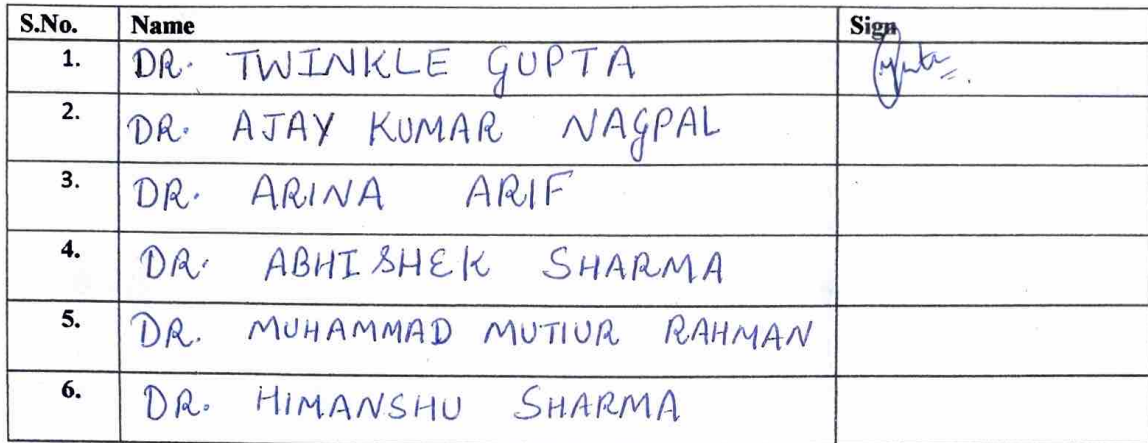 S.No. Name Sign
1. DR. TWINKLE GUPTA
2. DR. AJAY KUMAR NAGPAL
3. DR. ARINA ARIF
4. DR. ABHISHEK SHARMA
5. DR. MUHAMMAD MUTIUR RAHMAN
6. DR. HIMANSHU SHARMA